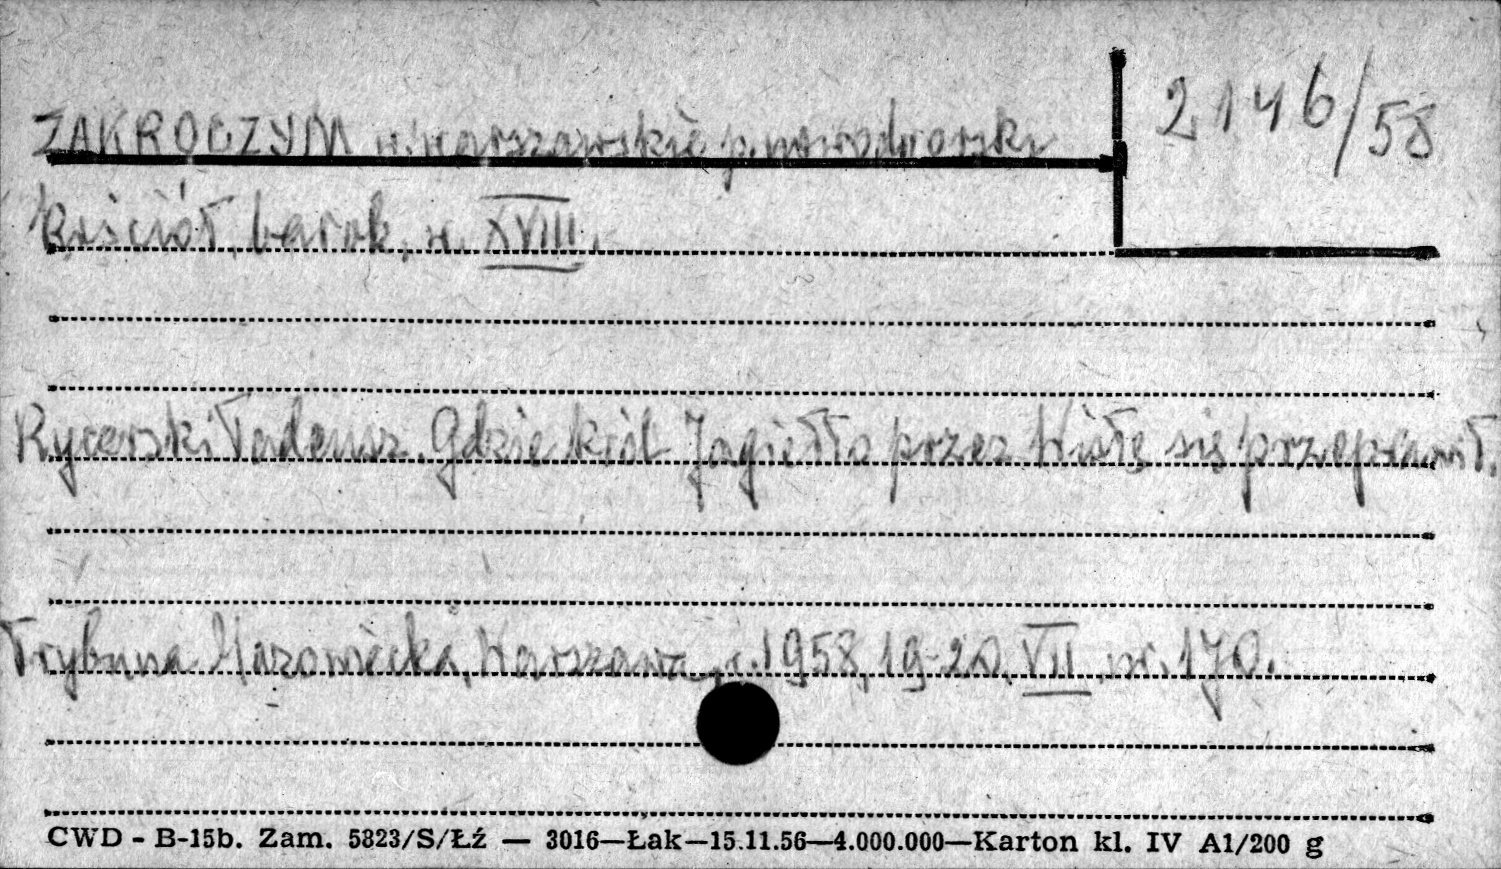 ZAKROCZYM w. warszawskie p. nowodworski
2146/58
Kościół, barok, w. XVIII.
Rycerski Tadeusz. Gdzie król Jagiełło przez Wisłę się przeprawił.
Trybuna Mazowiecka, Warszawa, r. 1958, 19-20. VII, nr. 170.
CWD - B-15b. Zam. 5823/S/Łź — 3016—Łak—15.11.56—4.000.000—Karton kl. IV A1/200 g